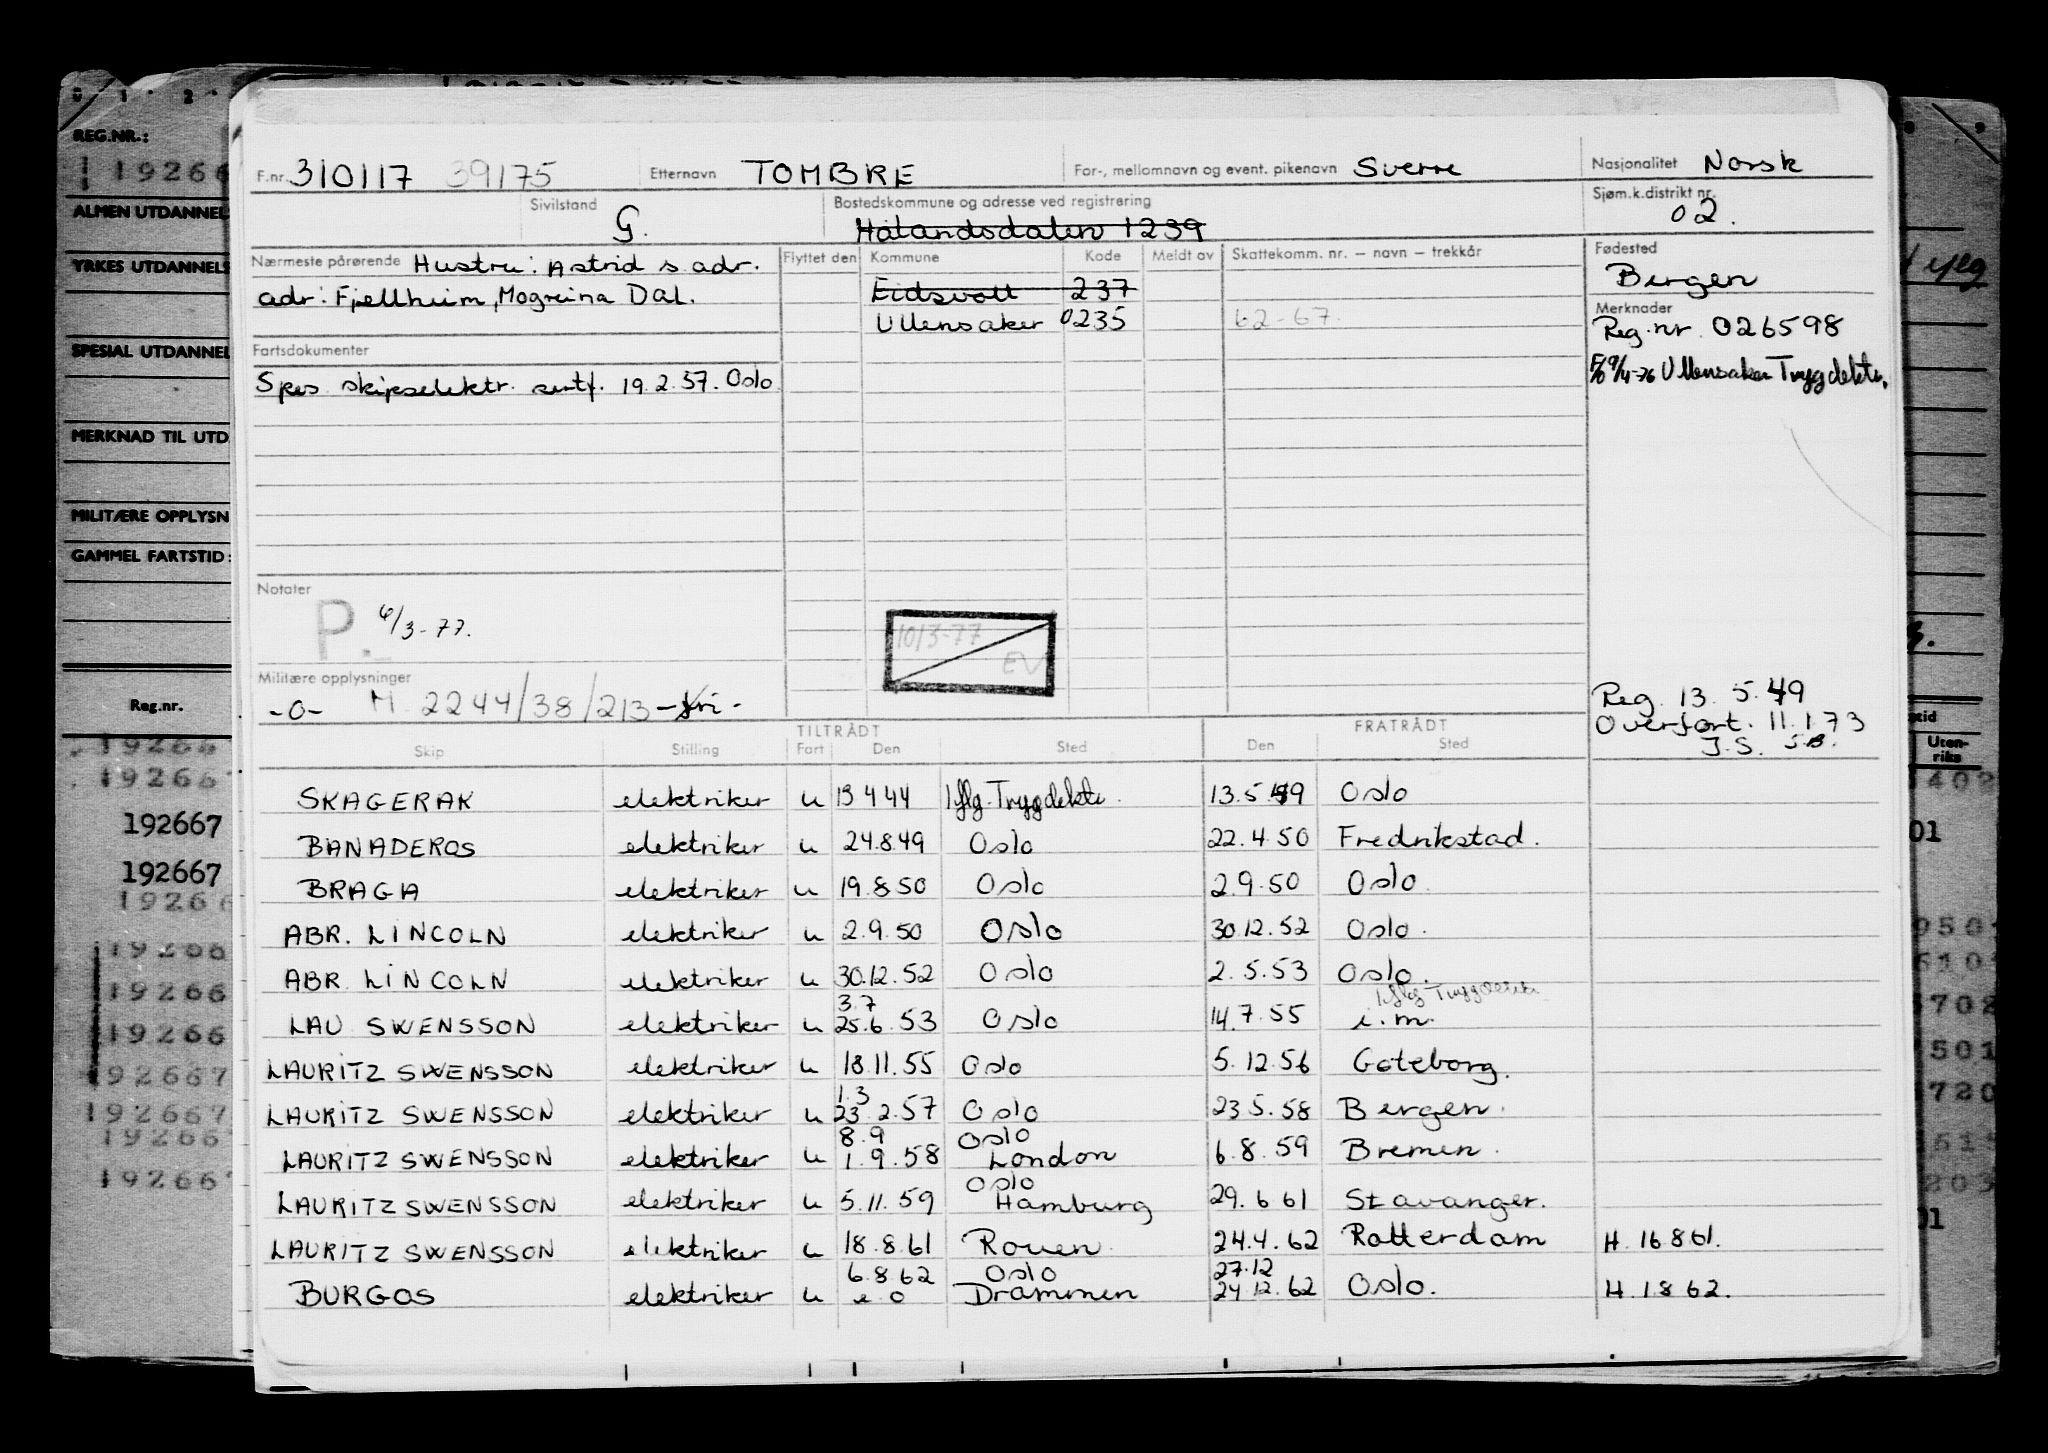 REG.NR.:
19266
ALMEN UTDANNEL
YRKES UTDANNELS
SPESIAL UTDANNEL
MERKNAD TIL UTD
MILITÆRE OPPLYSN
GAMMEL FARTSTID:
Reg.nr.
19266
192667
192667
192667
19266
19266
19266
19266
192667
192667
19266
19266
F.nr. 310117 39175 Etternavn TOMBRE For-, mellomnavn og event. pikenavn Sverre Nasjonalitet Norsk
Sivilstand G. Bostedskommune og adresse ved registrering Sjøm.k.distrikt nr. 02.
Hålandsdalen 1239
Nærmeste pårørende Hustru: Astrid s. adr. Flyttet den Kommune Kode Meldt av Skattekomm. nr. – navn – trekkår Fødested
Bergen
adr: Fjellheim, Mogreina Dal. Eidsvoll 237 Merknader
Ullensaker 0235 62-67. Reg.nr. 026598
Fartsdokumenter
F/o 9/4-76 Ullensaker Trygdekt.
Spes. skipselektr. sertf. 19.2.57. Oslo
Notater
P. 6/3-77.
10/3-77
EV
Militære opplysninger
-0- M. 2244/38/213 -fri-
Reg. 13.5.49
Overført. 11.1.73
J.S. S.B.
TILTRÅDT FRATRÅDT
Skip Stilling Fart Den Sted Den Sted
SKAGERAK elektriker u 13 4 44 iflg. Trygdekt. 13.5.49 Oslo
BANADEROS elektriker u 24.8.49 Oslo 22.4.50 Fredrikstad.
BRAGA elektriker u 19.8.50 Oslo 2.9.50 Oslo.
ABR. LINCOLN elektriker u 2.9.50 Oslo 30.12.52 Oslo.
ABR. LINCOLN elektriker u 30.12.52 Oslo 2.5.53 Oslo.
3.7 iflg Trygdekt.
LAU SWENSSON elektriker u 25.6.53 Oslo 14.7.55 i.m.
LAURITZ SWENSSON elektriker u 18.11.55 Oslo 5.12.56 Gøteborg.
1.3
LAURITZ SWENSSON elektriker u 23.2.57 Oslo 23.5.58 Bergen.
8.9 Oslo
LAURITZ SWENSSON elektriker u 1.9.58 London 6.8.59 Bremen.
Oslo
LAURITZ SWENSSON elektriker u 5.11.59 Hamburg 29.6 61 Stavanger.
LAURITZ SWENSSON elektriker u 18.8.61 Rouen. 24.4.62 Rotterdam H. 16 8 61.
6.8 62 Oslo 27.12
BURGOS elektriker u e.o Drammen 24 12.62 Oslo. H. 1 8 62.
tid
Uten-
riks
402
01
501
720
203
01